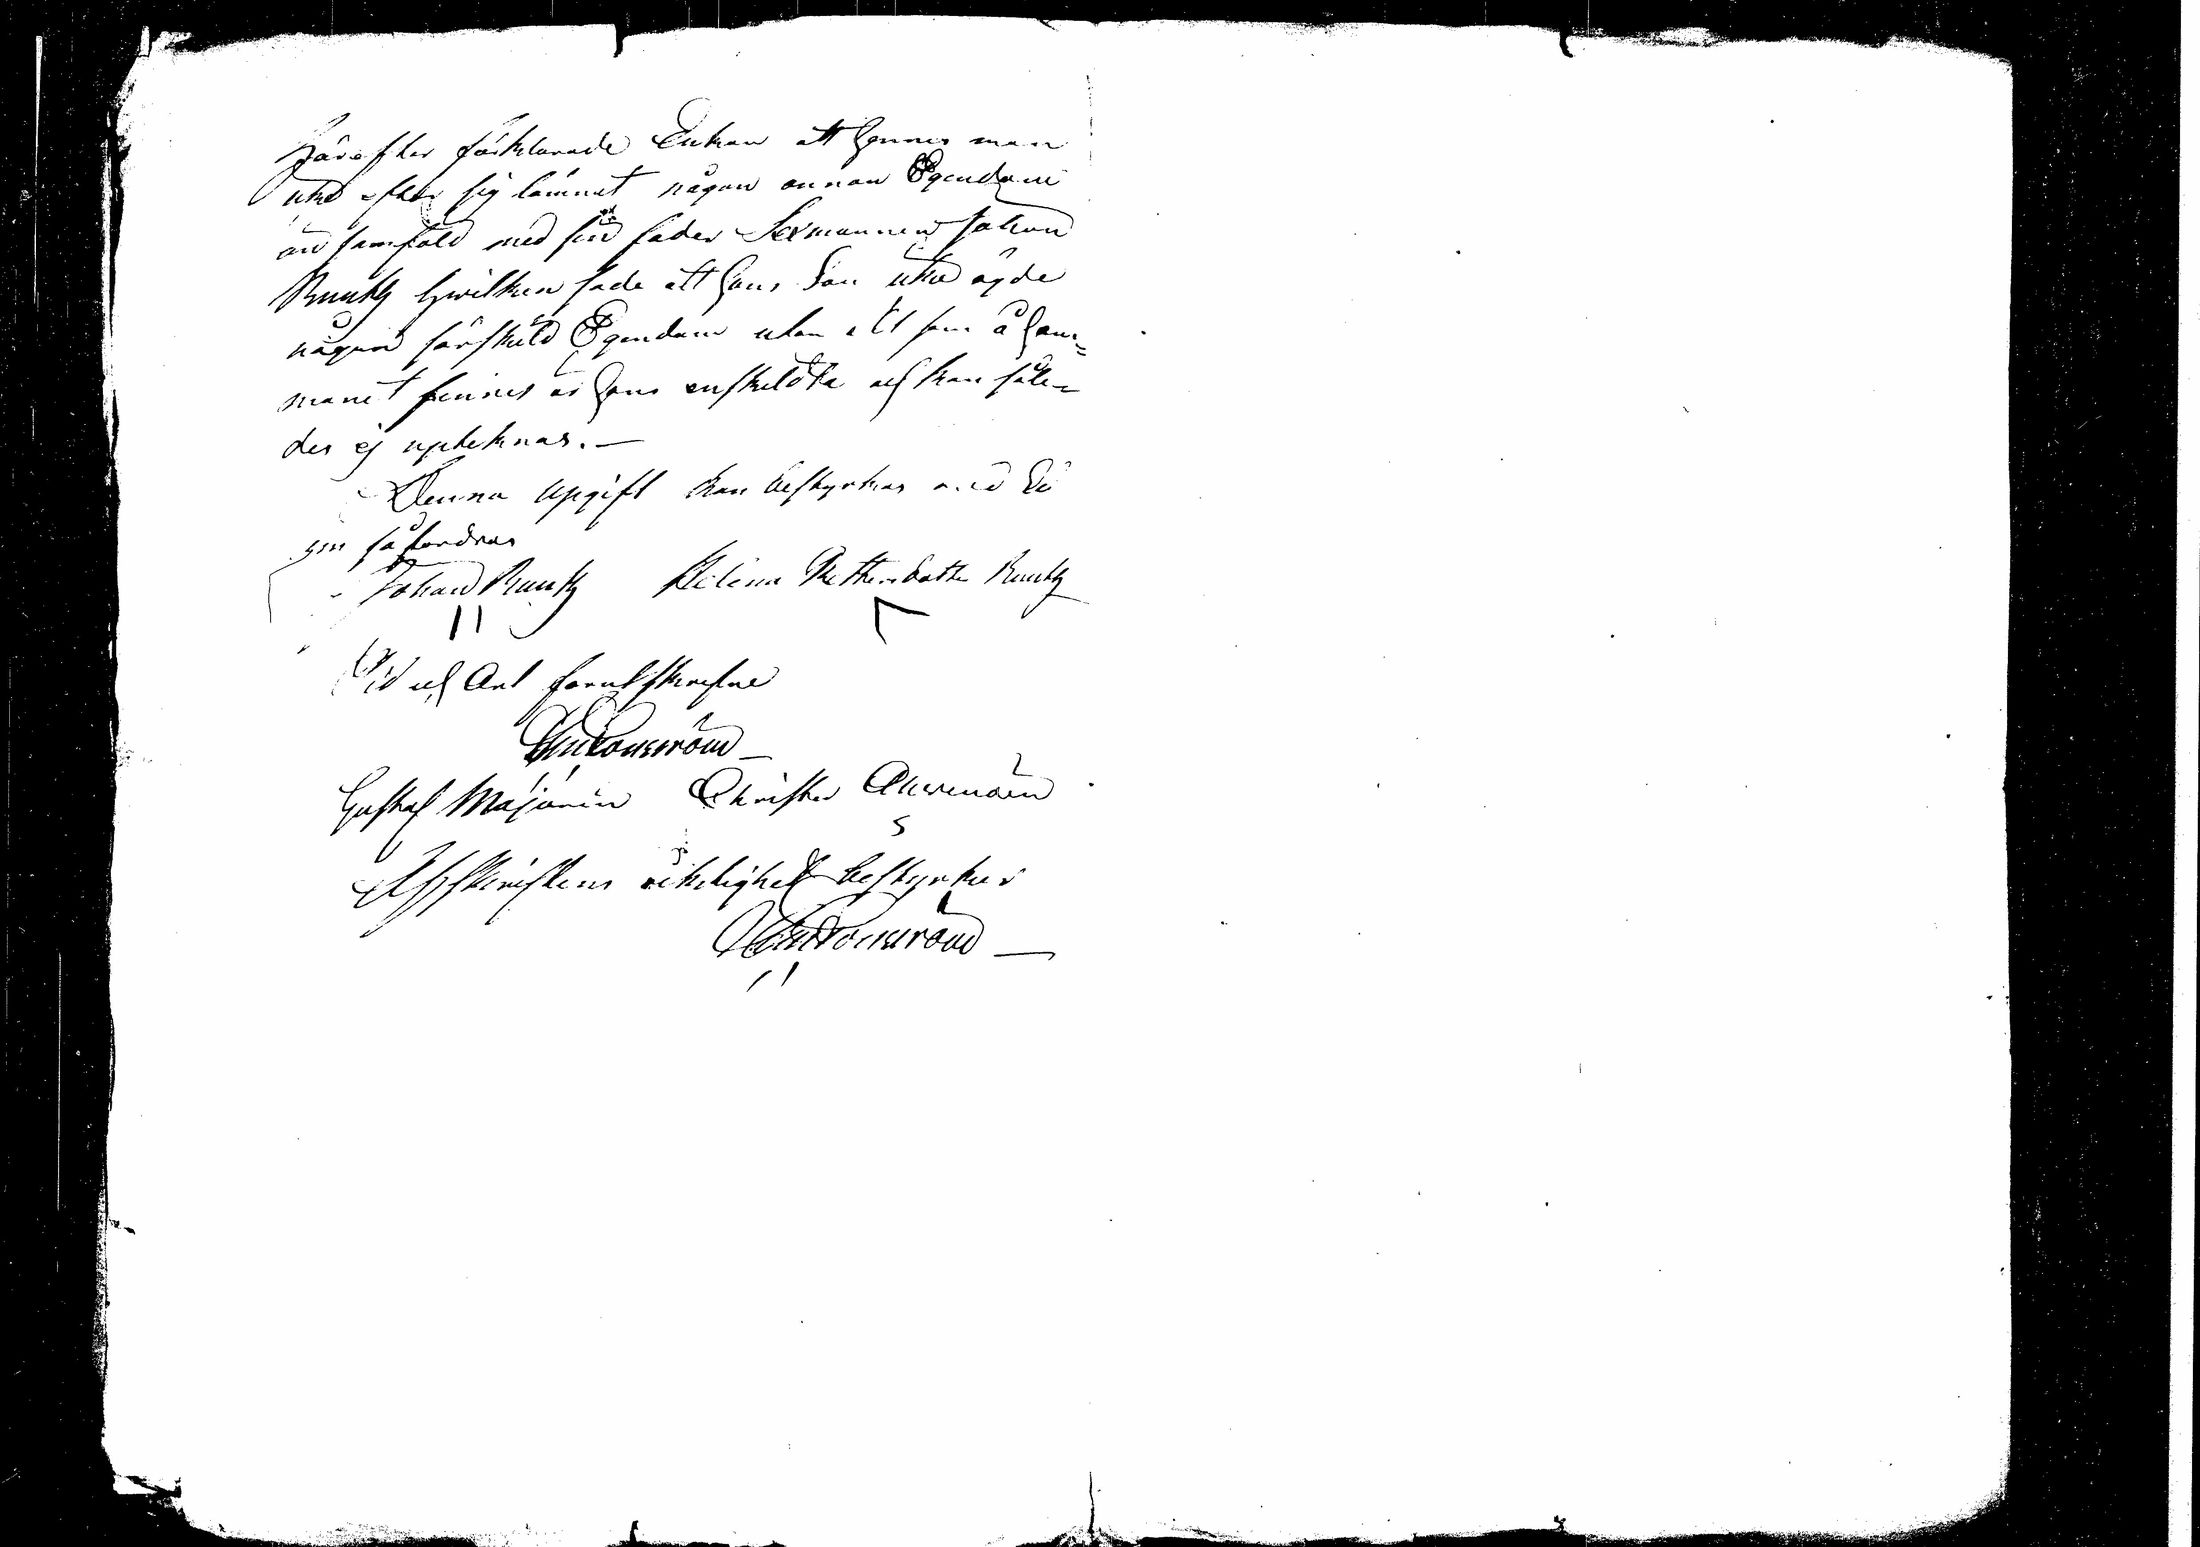 Härefter förklarade Enkan att hennes man
icke efter sig lämnat någon annan Egendom
än samfäld med sin fader Sexmannen Johan
Runtz hwilken sade att hans Son icke ägde
någon särskild Egendom utan allt som å Hem=
manet finnes är hans enskildta och kan såle=
des ej upteknas. —
Denna upgift kan bestyrkas med Ed
om så fordras
Johan Runtz Helena Petters dotter Runtz
Tid och Ort förutskrefne
Gustaf Majorin Christer
Afskriftens riktighet bestyrker